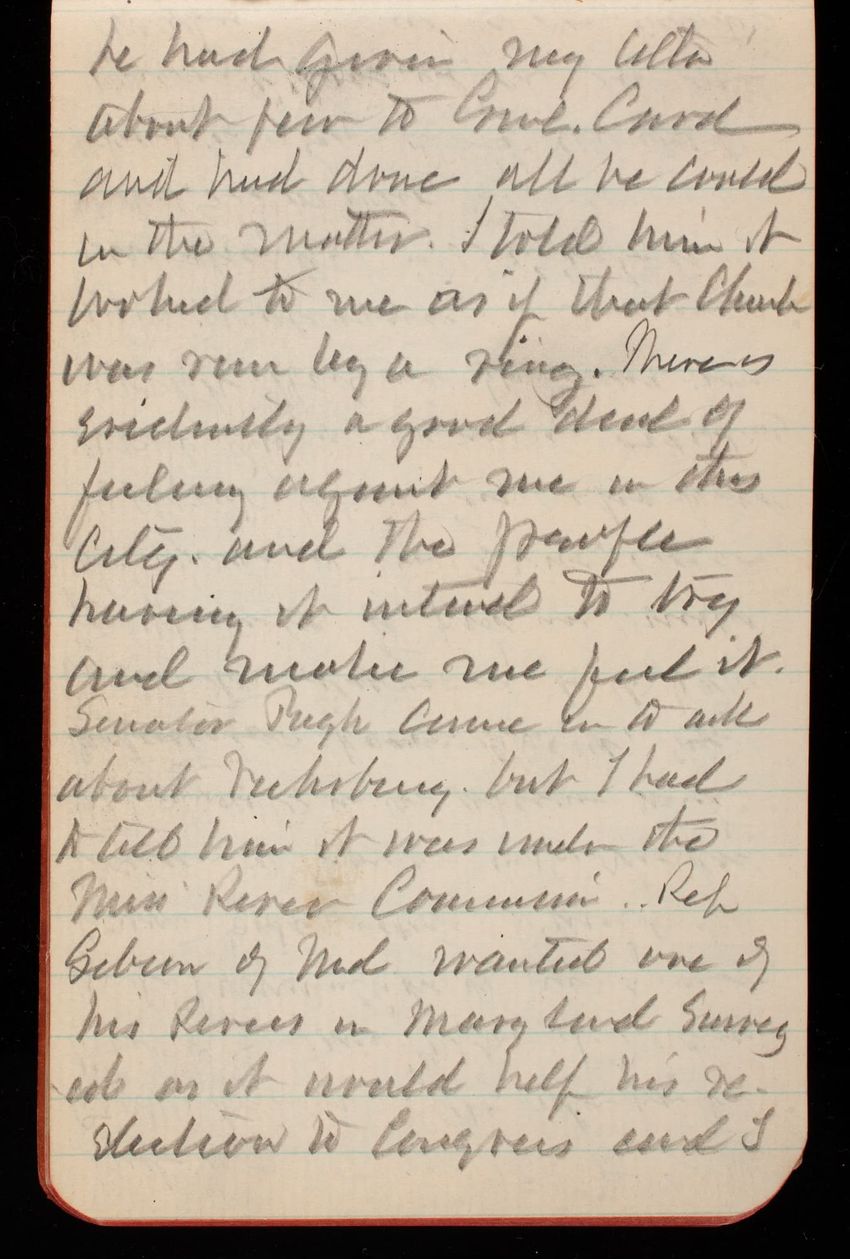 he had given my letter
about pew to Comd. Card
and had done all he could
in the matter. I told him it
looked to me as if that Church
was run by a ring. There is
evidently a good deal of
feeling against me in this
City. and the people
having it intend to try
and make me feel it.
Senator Pugh came in to ask
about Vicksburg. but I had
to tell him it was under the
Miss River Commission.. Rep
Gibson of Md. wanted one of
his Rivers in Maryland Survey
ed as it would help his re-
election to Congress and I